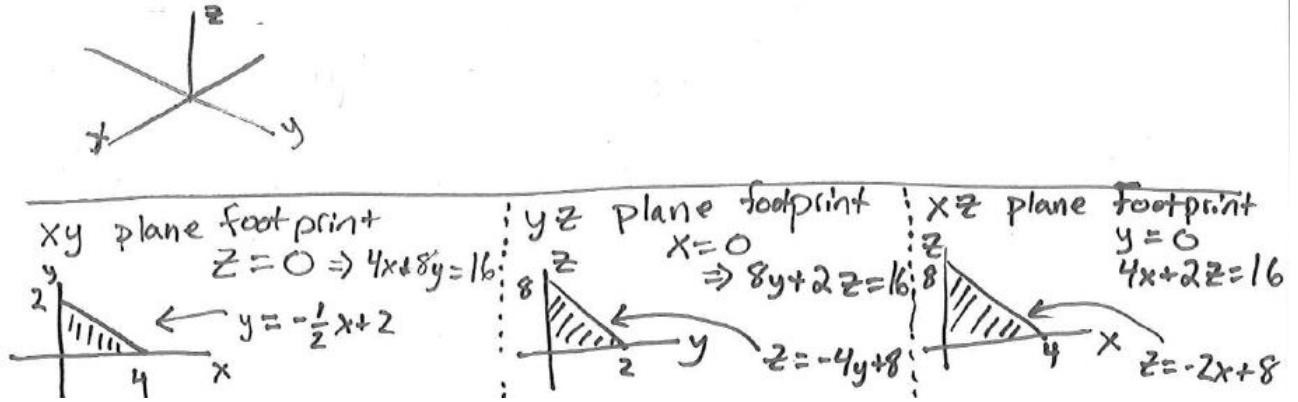 z
x
y
xy plane footprint
z = 0 ⇒ 4x+8y=16
y
2
y = -½x+2
4
x
yz plane footprint
x=0
⇒ 8y+2z=16
z
8
2
y
z=-4y+8
xz plane footprint
y=0
4x+2z=16
z
8
4
x
z=-2x+8